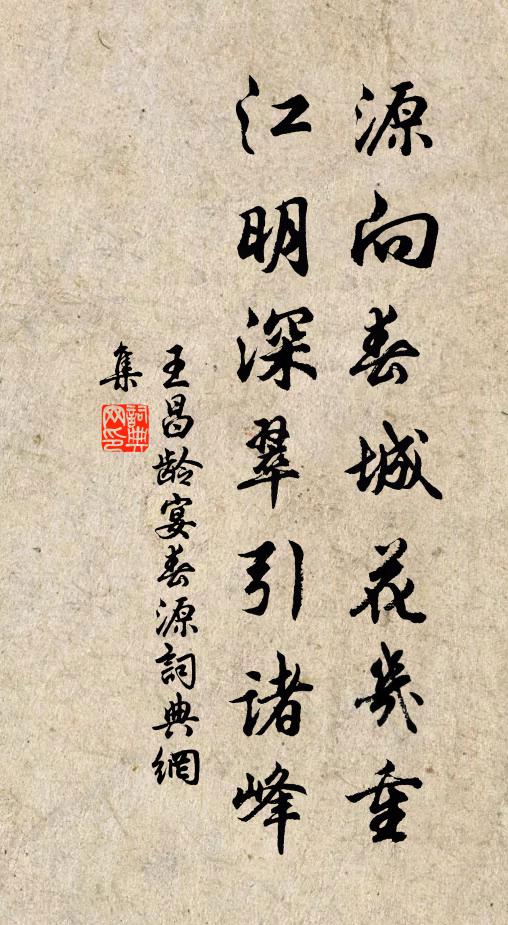 源向春城花幾重
江明深翠引諸峰
王昌龄宴春源詞典網
集
詞典網印